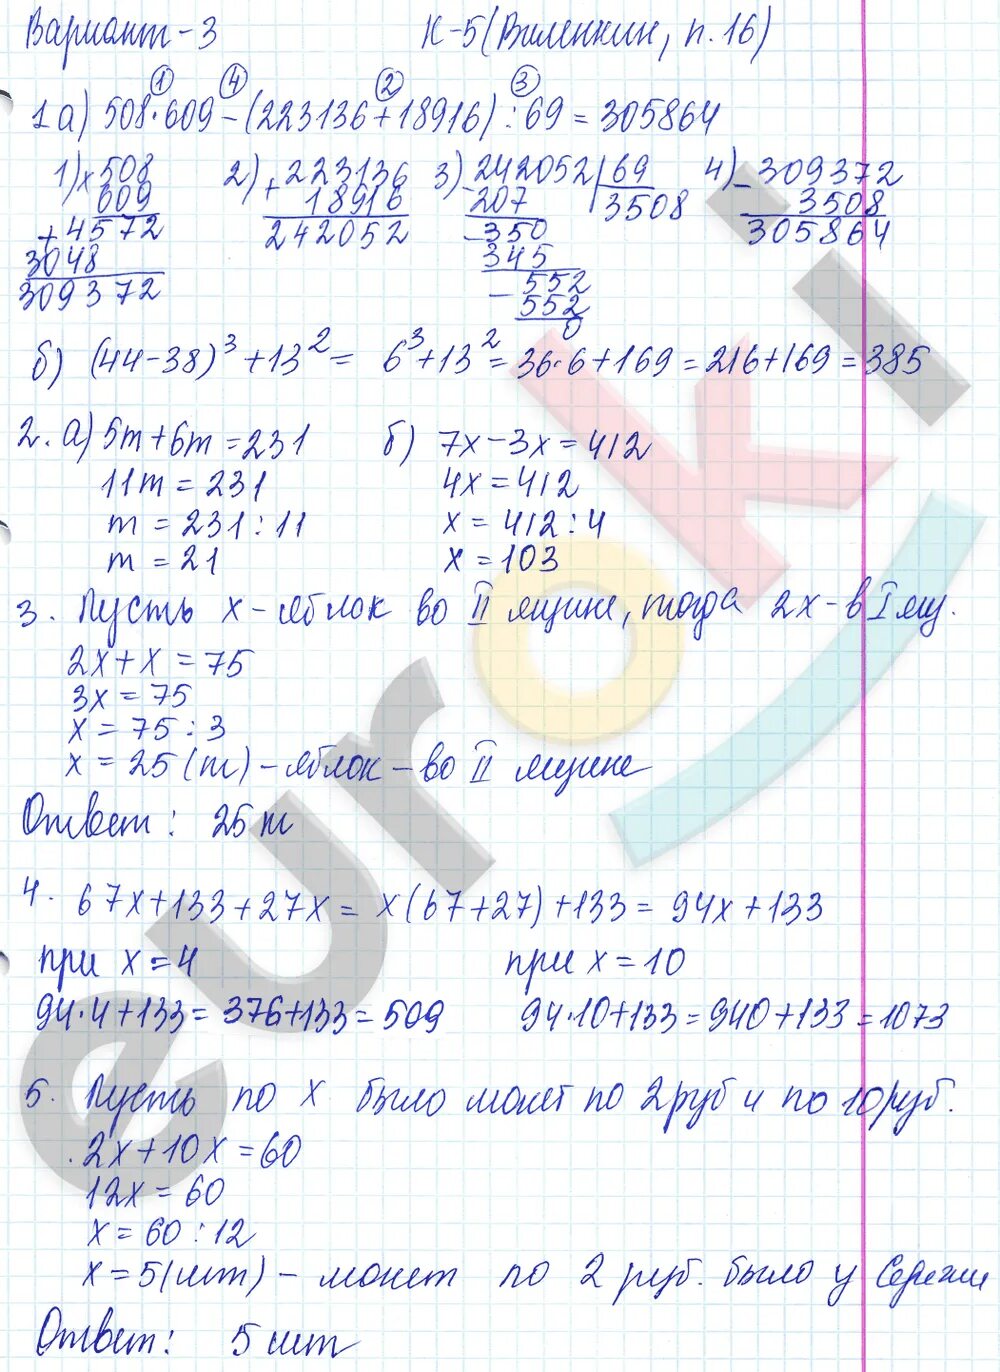 Вариант-3 К-5(Виленкин, п.16)
① ④ ② ③
1 а) 508·609-(223136+18916):69=305864
1) × 508 2) + 223136 3) - 242052 | 69 4) - 309372
609 18916 207 3508 3508
+ 4572 242052 - 350 305864
3048 345
309372 - 552
552
0
б) (44-38)³+13²= 6³+13²=36·6+169=216+169=385
2. а) 5m+6m=231 б) 7x-3x=412
11m=231 4x=412
m=231:11 x=412:4
m=21 x=103
3. Пусть x-яблок во II ящике, тогда 2x-в I ящ.
2x+x=75
3x=75
x=75:3
x=25(ш)-яблок-во II ящике
Ответ: 25 ш
4. 67x+133+27x=x(67+27)+133=94x+133
при x=4 при x=10
94·4+133=376+133=509 94·10+133=940+133=1073
5. Пусть по x было монет по 2 руб и по 10 руб.
2x+10x=60
12x=60
x=60:12
x=5(шт)-монет по 2 руб. было у Сережи
Ответ: 5 шт
euroki